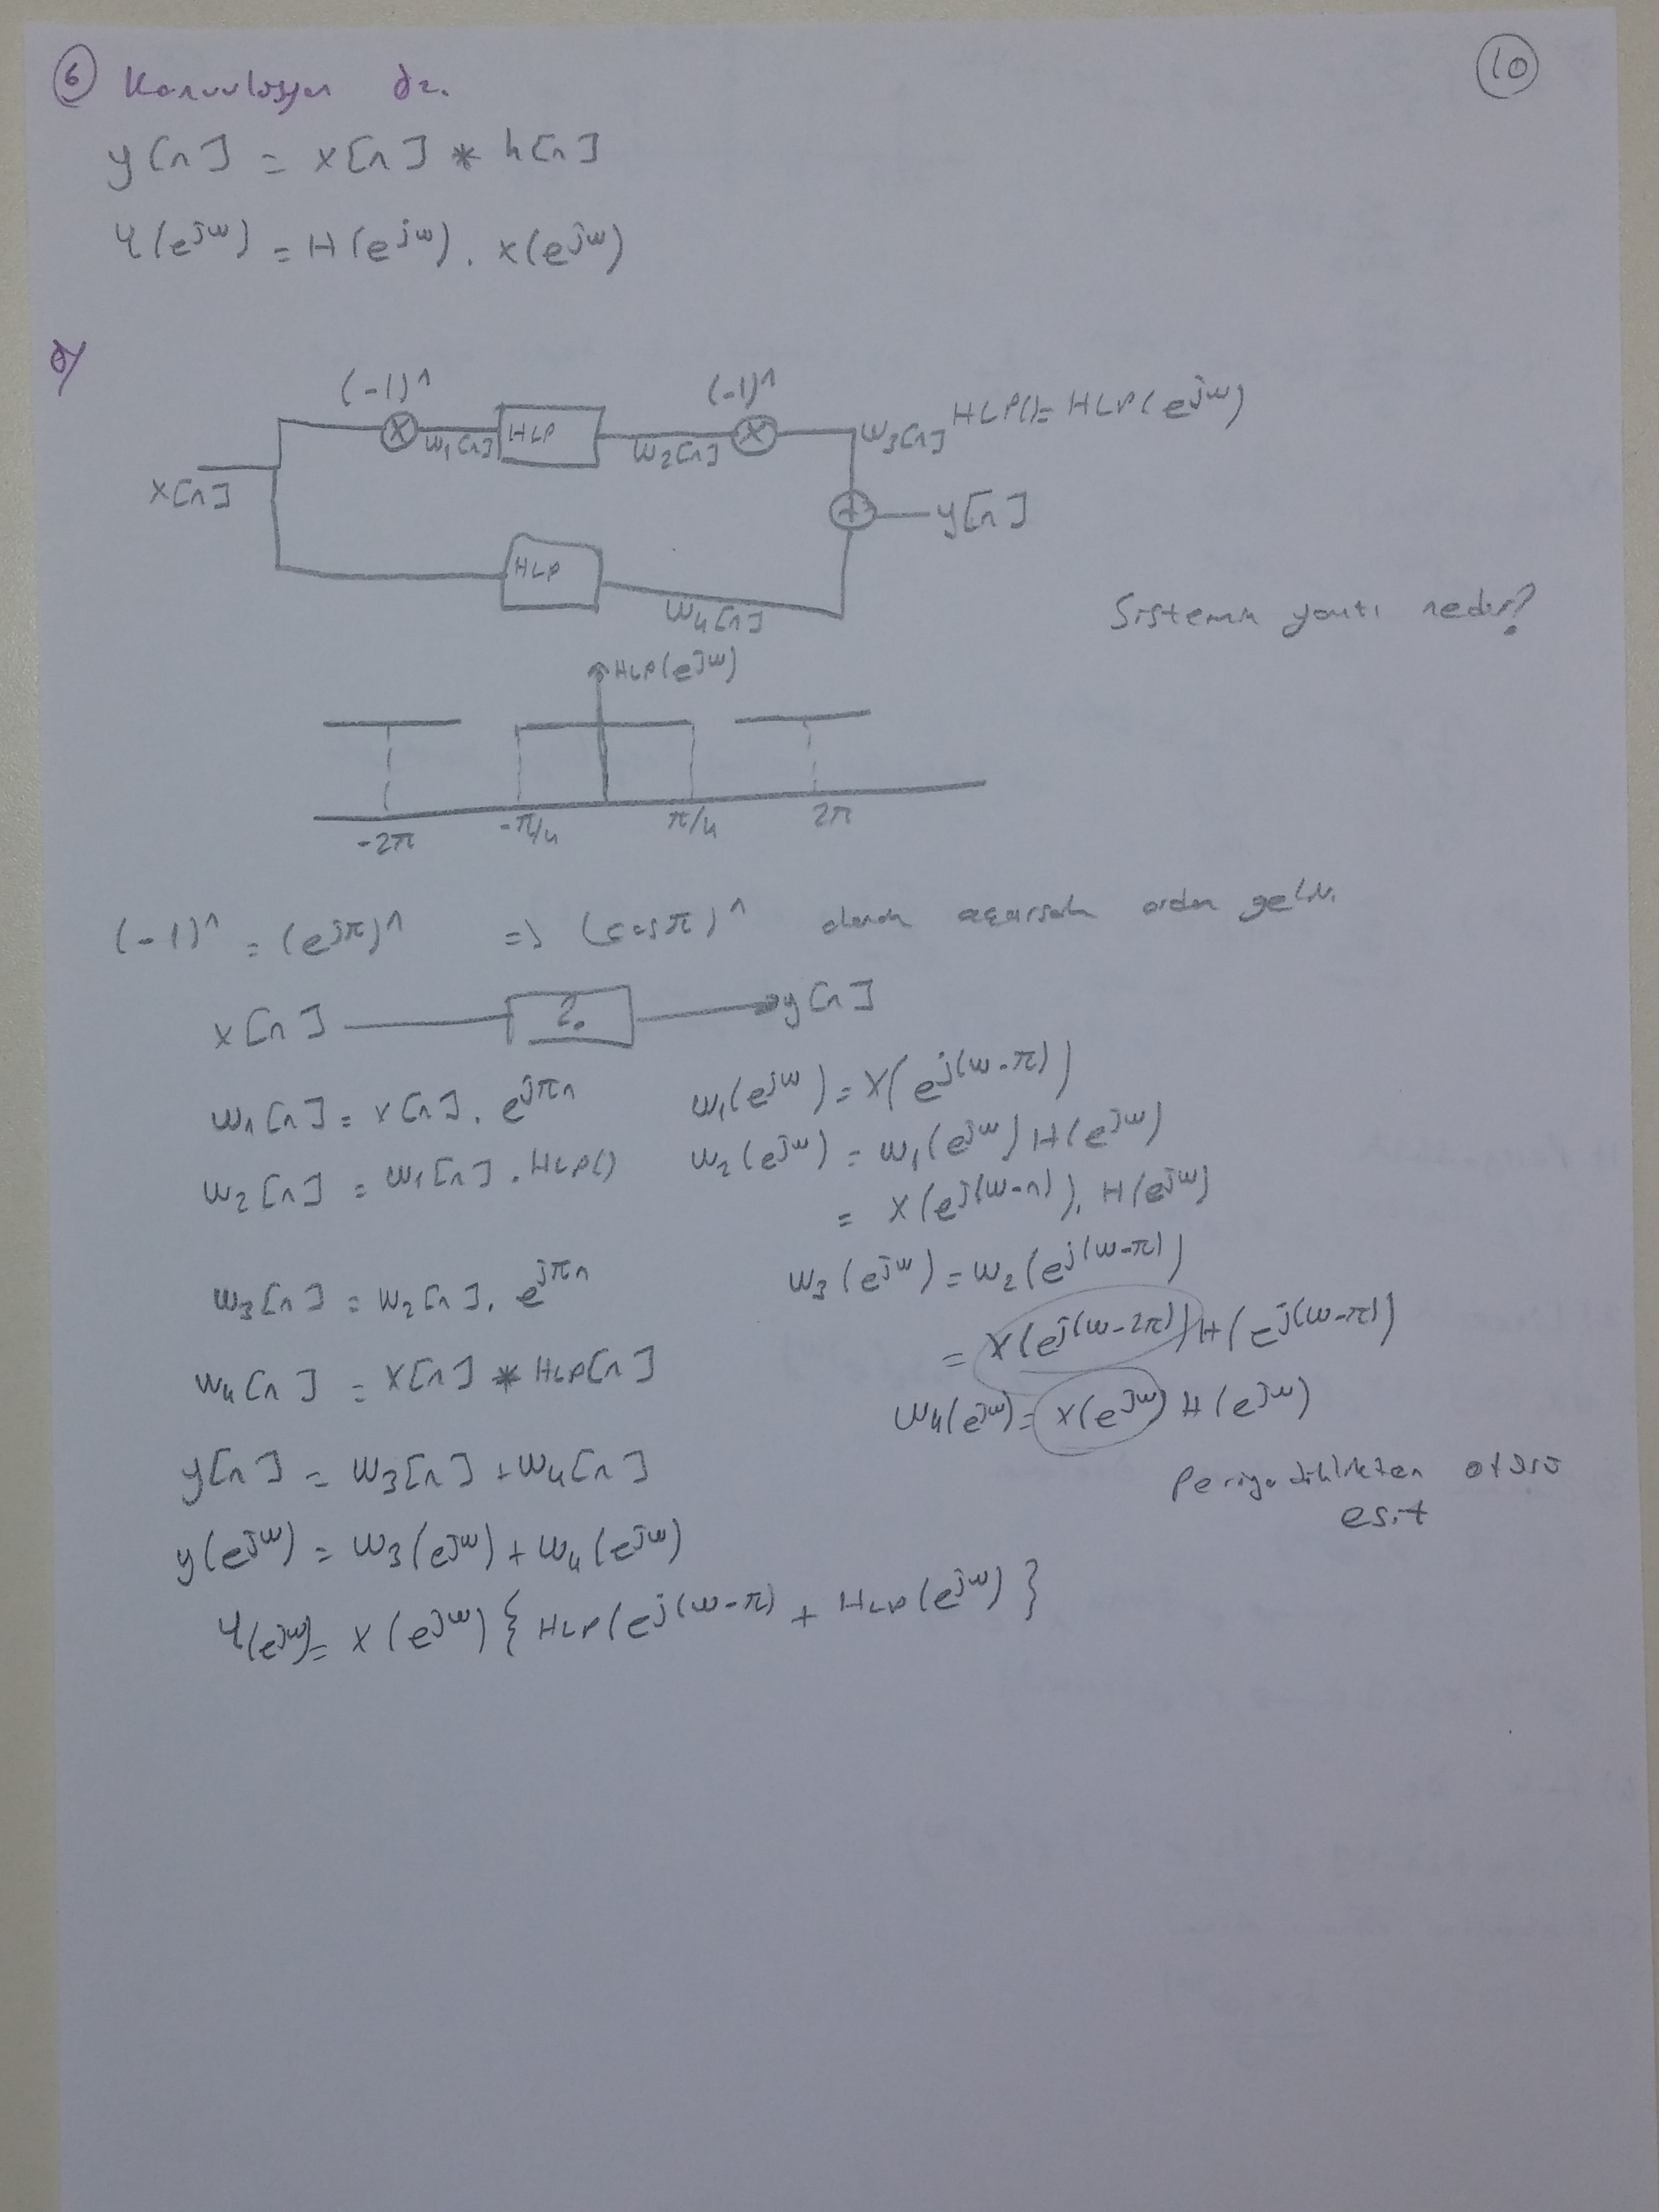 ⑥ Konvulosyon öz.
⑩
y[n] = x[n] * h[n]
Y(e^jw) = H(e^jw) . x(e^jw)
ö/
(-1)^n (-1)^n
x[n] X w1[n] HLP w2[n] X w3[n] HLP()= HLP(e^jw)
+ y[n]
HLP w4[n]
Sistemin yanıtı nedir?
HLP(e^jw)
-2π -π/4 π/4 2π
(-1)^n = (e^jπ)^n => (cosπ)^n olarak açarsak ordan gelir.
x[n] ? y[n]
w1[n] = x[n] . e^jπn w1(e^jw) = X(e^j(w-π))
w2[n] = w1[n] . HLP() w2(e^jw) = w1(e^jw) H(e^jw)
= X(e^j(w-π)) . H(e^jw)
w3[n] = w2[n] . e^jπn w3(e^jw) = w2(e^j(w-π))
= X(e^j(w-2π)) H(e^j(w-π))
w4[n] = x[n] * HLP[n] w4(e^jw) = x(e^jw) H(e^jw)
y[n] = w3[n] + w4[n]
Periyodiklikten ötürü
eşit
y(e^jw) = w3(e^jw) + w4(e^jw)
Y(e^jw) = x(e^jw) { HLP(e^j(w-π) + HLP(e^jw) }